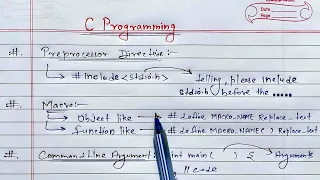 Date
Page
C Programming
#. Preprocessor Direction:-
#include<stdio.h> telling, please include
stdio.h before the .....
#. Macro:-
Object like # define MACRO_NAME Replace_text
function like # define MACRO_NAME( ) Replace_text
#. Command Line Argument int main( ) { Arguments
// code